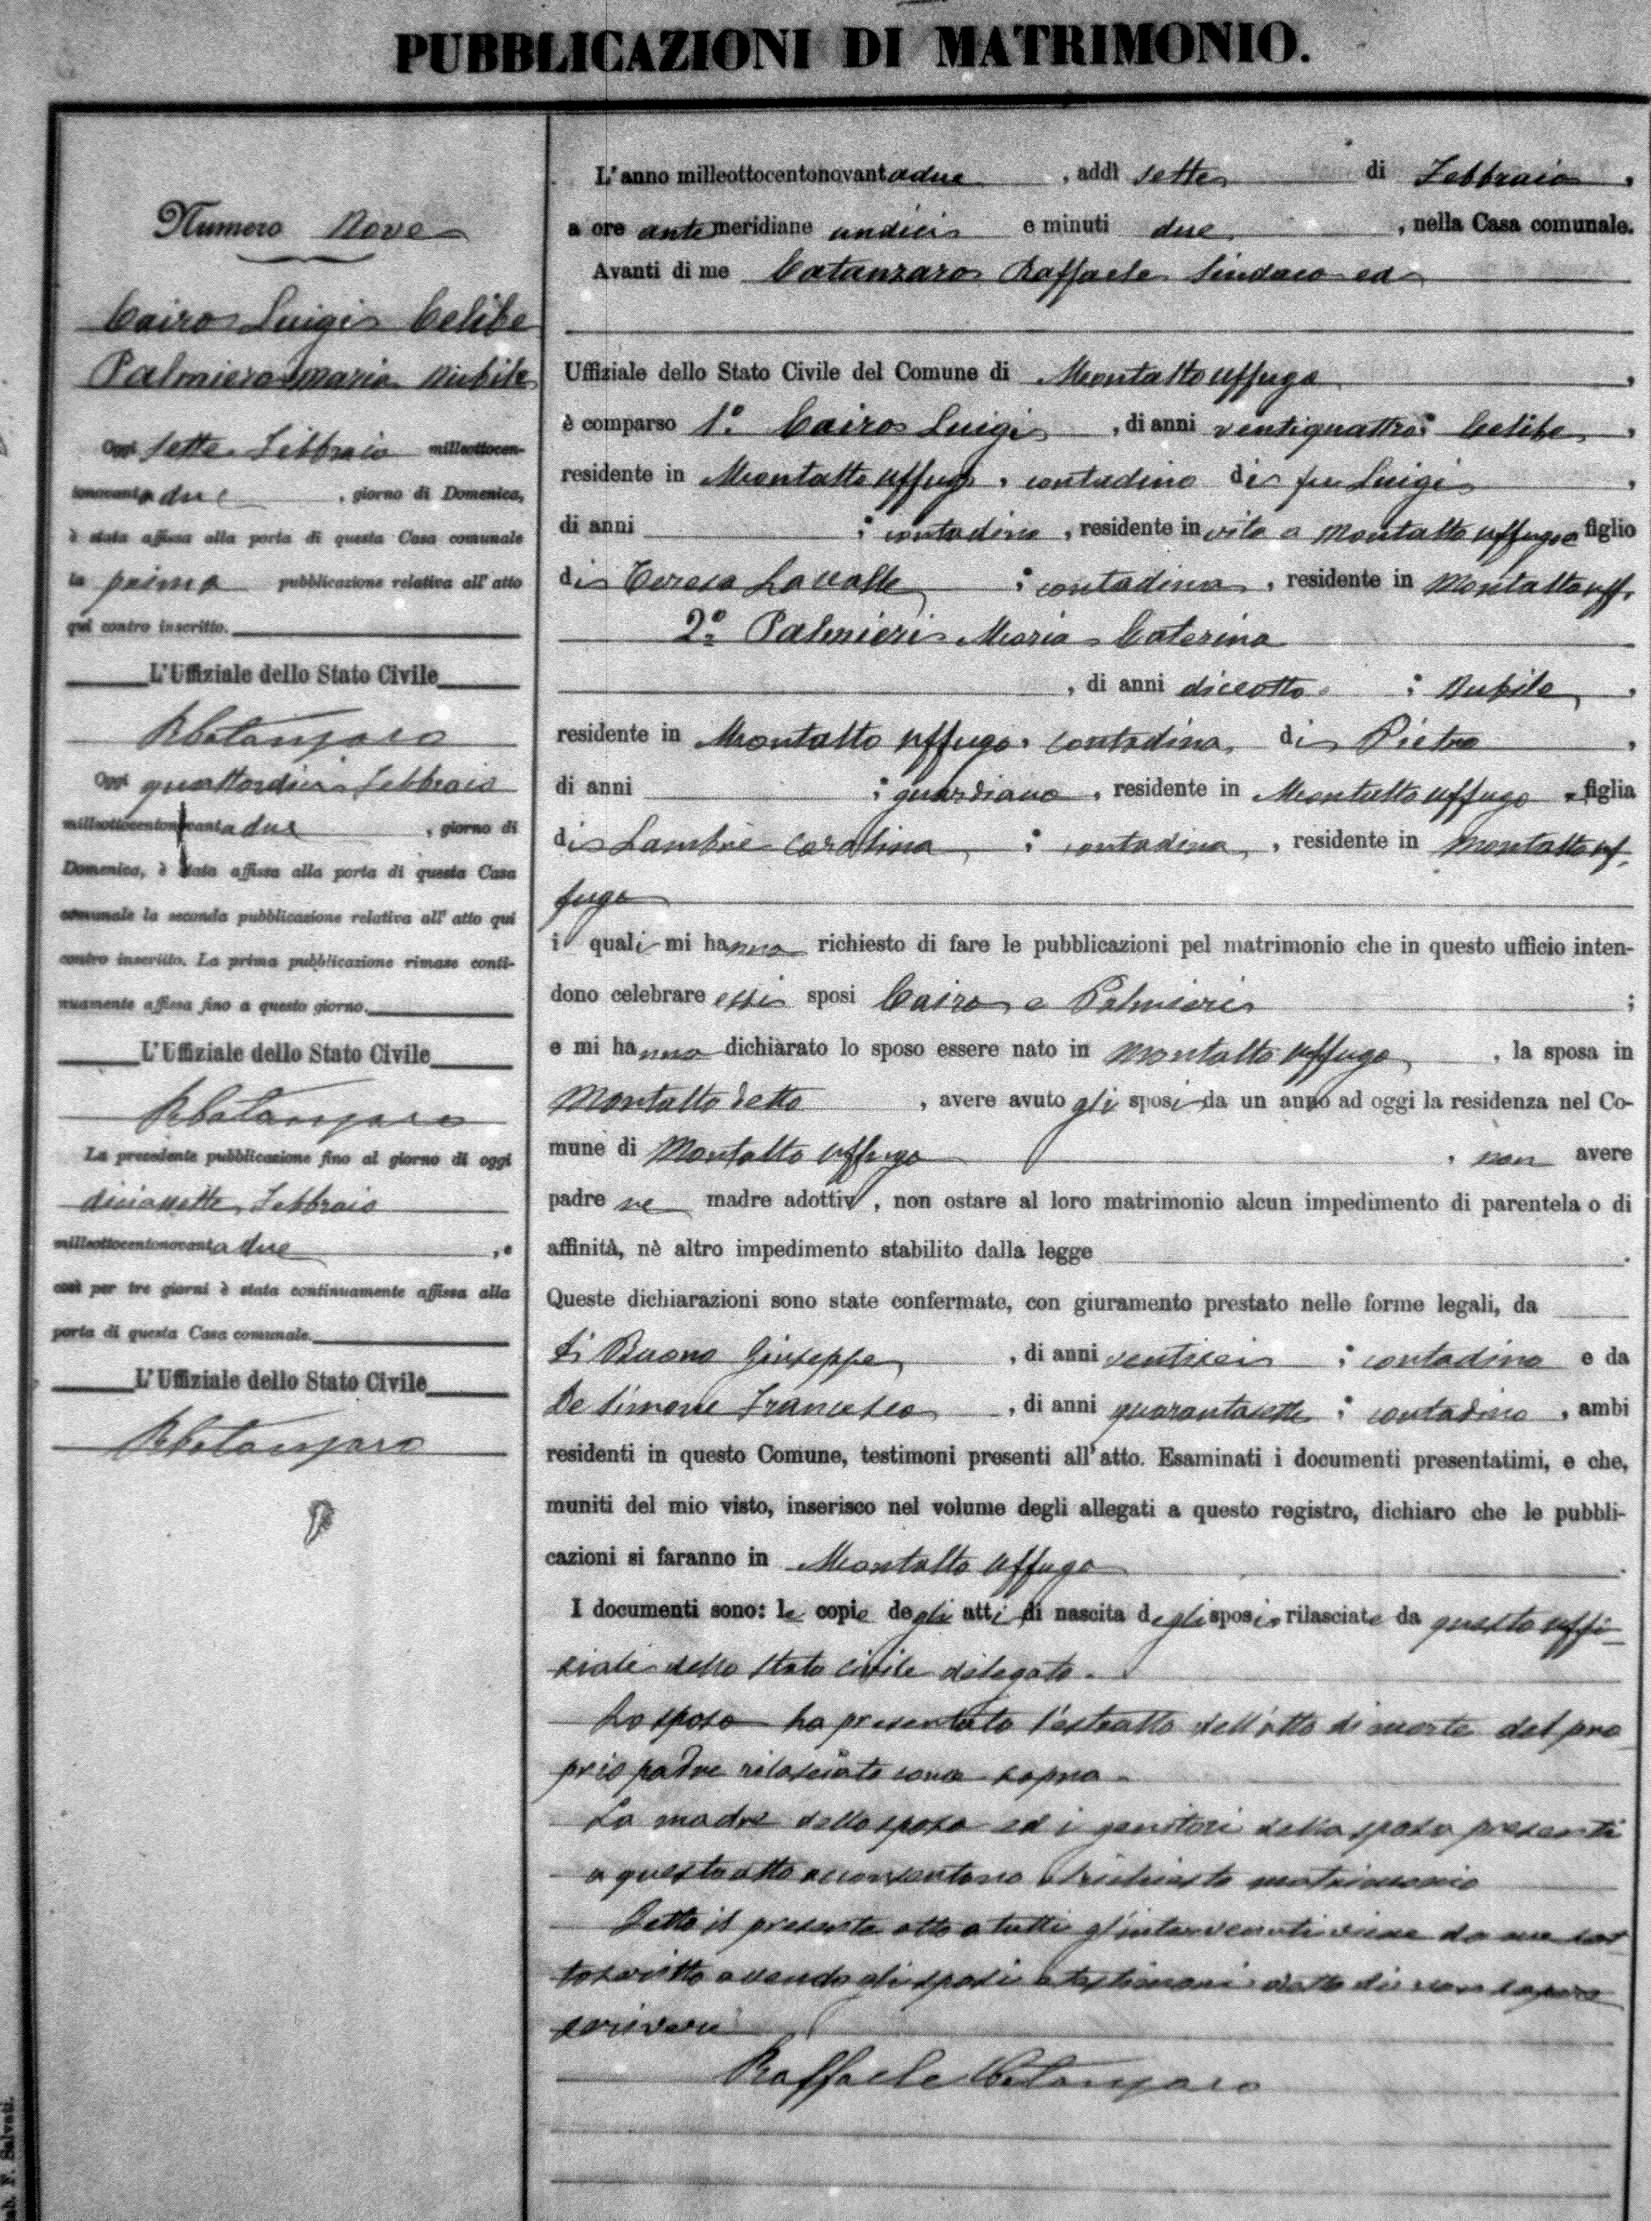 PUBBLICAZIONI DI MATRIMONIO.
Numero Nove
Cairo Luigi Celibe
Palmiero Maria Nubile
Oggi sette Febbraio milleottocen-
tonovantadue, giorno di Domenica,
è stata affissa alla porta di questa Casa comunale
la prima pubblicazione relativa all' atto
qui contro inscritto.
L'Uffiziale dello Stato Civile
RCatanzaro
Oggi quattordici Febbraio
milleottocentonovantadue, giorno di
Domenica, è stata affissa alla porta di questa Casa
comunale la seconda pubblicazione relativa all' atto qui
contro inscritto. La prima pubblicazione rimase conti-
nuamente affissa fino a questo giorno.
L'Uffiziale dello Stato Civile
RCatanzaro
La precedente pubblicazione fino al giorno di oggi
diciasette Febbraio
milleottocentonovantadue, e
così per tre giorni è stata continuamente affissa alla
porta di questa Casa comunale.
L'Uffiziale dello Stato Civile
RCatanzaro
L'anno milleottocentonovantadue, addì sette di Febbraio,
a ore antemeridiane undici e minuti due, nella Casa comunale.
Avanti di me Catanzaro Raffaele Sindaco ed
Uffiziale dello Stato Civile del Comune di Montalto Uffugo,
è comparso 1.º Cairo Luigi, di anni ventiquattro; Celibe,
residente in Montalto Uffugo, contadino di fu Luigi,
di anni ; contadino, residente in vita a Montalto Uffugo e figlio
di Teresa Lavalle ; contadina, residente in Montalto Uff.
2.º Palmieri Maria Caterina
, di anni diciotto ; Nubile,
residente in Montalto Uffugo, contadina, di Pietro,
di anni ; guardiano, residente in Montalto Uffugo, figlia
di Lambrè Carolina ; contadina, residente in Montalto Uf-
fugo
i quali mi hanno richiesto di fare le pubblicazioni pel matrimonio che in questo ufficio inten-
dono celebrare essi sposi Cairo e Palmieri ;
e mi hanno dichiarato lo sposo essere nato in Montalto Uffugo, la sposa in
Montalto detto, avere avuto gli sposi da un anno ad oggi la residenza nel Co-
mune di Montalto Uffugo, non avere
padre ne madre adottiv, non ostare al loro matrimonio alcun impedimento di parentela o di
affinità, nè altro impedimento stabilito dalla legge.
Queste dichiarazioni sono state confermate, con giuramento prestato nelle forme legali, da
Di Buono Giuseppe, di anni ventisei ; contadino e da
De Simone Francesco, di anni quarantasette ; contadino, ambi
residenti in questo Comune, testimoni presenti all'atto. Esaminati i documenti presentatimi, e che,
muniti del mio visto, inserisco nel volume degli allegati a questo registro, dichiaro che le pubbli-
cazioni si faranno in Montalto Uffugo.
I documenti sono: le copie degli atti di nascita degli sposi rilasciate da questo uffi-
ziale dello stato civile delegato.
Lo sposo ha presentato l'estratto dell'atto di morte del pro
prio padre rilasciato come sopra.
La madre dello sposo ed i genitori della sposa presenti
a questo atto acconsentono al richiesto matrimonio
Letto il presente atto a tutti gl'intervenuti viene da me sot
toscritto avendo gli sposi e testimoni detto di non sapere
scrivere
Raffaele Catanzaro
F. Salvati.